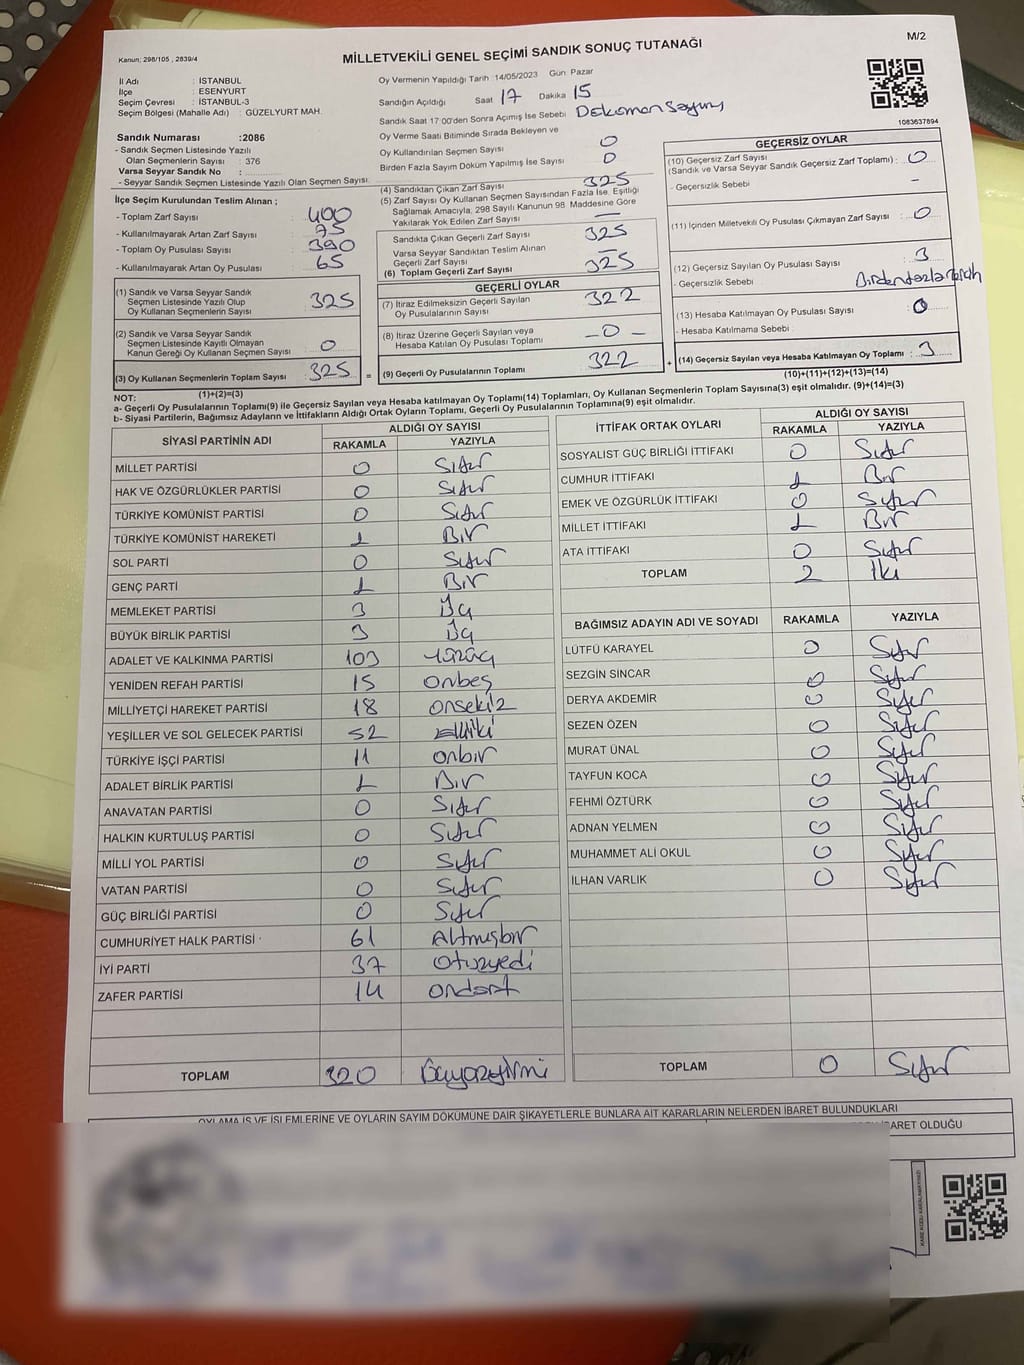 M/2
Kanun: 298/105 , 2839/4
MİLLETVEKİLİ GENEL SEÇİMİ SANDIK SONUÇ TUTANAĞI
İl Adı : İSTANBUL
İlçe : ESENYURT
Seçim Çevresi : İSTANBUL-3
Seçim Bölgesi (Mahalle Adı) : GÜZELYURT MAH.
Sandık Numarası :2086
- Sandık Seçmen Listesinde Yazılı
Olan Seçmenlerin Sayısı : 376
Varsa Seyyar Sandık No :
- Seyyar Sandık Seçmen Listesinde Yazılı Olan Seçmen Sayısı:
Oy Vermenin Yapıldığı Tarih 14/05/2023 Gün Pazar
Sandığın Açıldığı Saat 17 Dakika 15
Sandık Saat 17:00'den Sonra Açımış İse Sebebi
Oy Verme Saati Bitiminde Sırada Bekleyen ve
Oy Kullandırılan Seçmen Sayısı 0
Birden Fazla Sayım Döküm Yapılmış İse Sayısı 0
1083637894
İlçe Seçim Kurulundan Teslim Alınan ;
- Toplam Zarf Sayısı : 400
- Kullanılmayarak Artan Zarf Sayısı : 75
- Toplam Oy Pusulası Sayısı : 390
- Kullanılmayarak Artan Oy Pusulası : 65
(1) Sandık ve Varsa Seyyar Sandık
Seçmen Listesinde Yazılı Olup
Oy Kullanan Seçmenlerin Sayısı : 325
(2) Sandık ve Varsa Seyyar Sandık
Seçmen Listesinde Kayıtlı Olmayan
Kanun Gereği Oy Kullanan Seçmen Sayısı : 0
(3) Oy Kullanan Seçmenlerin Toplam Sayısı : 325
(1)+(2)=(3)
(4) Sandıktan Çıkan Zarf Sayısı 325
(5) Zarf Sayısı Oy Kullanan Seçmen Sayısından Fazla İse, Eşitliği
Sağlamak Amacıyla, 298 Sayılı Kanunun 98. Maddesine Göre
Yakılarak Yok Edilen Zarf Sayısı —
Sandıkta Çıkan Geçerli Zarf Sayısı 325
Varsa Seyyar Sandıktan Teslim Alınan
Geçerli Zarf Sayısı
(6) Toplam Geçerli Zarf Sayısı 325
GEÇERLİ OYLAR
(7) İtiraz Edilmeksizin Geçerli Sayılan
Oy Pusulalarının Sayısı : 322
(8) İtiraz Üzerine Geçerli Sayılan veya
Hesaba Katılan Oy Pusulası Toplamı : - 0 -
= (9) Geçerli Oy Pusulalarının Toplamı : 322 +
GEÇERSİZ OYLAR
(10) Geçersiz Zarf Sayısı
(Sandık ve Varsa Seyyar Sandık Geçersiz Zarf Toplamı) : 0
- Geçersizlik Sebebi : -
(11) İçinden Milletvekili Oy Pusulası Çıkmayan Zarf Sayısı : 0
(12) Geçersiz Sayılan Oy Pusulası Sayısı : 3
- Geçersizlik Sebebi :
(13) Hesaba Katılmayan Oy Pusulası Sayısı : 0
- Hesaba Katılmama Sebebi :
(14) Geçersiz Sayılan veya Hesaba Katılmayan Oy Toplamı : 3
(10)+(11)+(12)+(13)=(14)
NOT:
a- Geçerli Oy Pusulalarının Toplamı(9) ile Geçersiz Sayılan veya Hesaba katılmayan Oy Toplamı(14) Toplamları, Oy Kullanan Seçmenlerin Toplam Sayısına(3) eşit olmalıdır. (9)+(14)=(3)
b- Siyasi Partilerin, Bağımsız Adayların ve İttifakların Aldığı Ortak Oyların Toplamı, Geçerli Oy Pusulalarının Toplamına(9) eşit olmalıdır.
SİYASİ PARTİNİN ADI ALDIĞI OY SAYISI
RAKAMLA YAZIYLA
MİLLET PARTİSİ 0 Sıfır
HAK VE ÖZGÜRLÜKLER PARTİSİ 0 Sıfır
TÜRKİYE KOMÜNİST PARTİSİ 0 Sıfır
TÜRKİYE KOMÜNİST HAREKETİ 1 Bir
SOL PARTİ 0 Sıfır
GENÇ PARTİ 1 Bir
MEMLEKET PARTİSİ 3 Üç
BÜYÜK BİRLİK PARTİSİ 3 Üç
ADALET VE KALKINMA PARTİSİ 103 Yüzüç
YENİDEN REFAH PARTİSİ 15 onbeş
MİLLİYETÇİ HAREKET PARTİSİ 18 onsekiz
YEŞİLLER VE SOL GELECEK PARTİSİ 52 Elliiki
TÜRKİYE İŞÇİ PARTİSİ 11 onbir
ADALET BİRLİK PARTİSİ 1 Bir
ANAVATAN PARTİSİ 0 Sıfır
HALKIN KURTULUŞ PARTİSİ 0 Sıfır
MİLLİ YOL PARTİSİ 0 Sıfır
VATAN PARTİSİ 0 Sıfır
GÜÇ BİRLİĞİ PARTİSİ 0 Sıfır
CUMHURİYET HALK PARTİSİ 61 Altmışbir
İYİ PARTİ 37 otuzyedi
ZAFER PARTİSİ 14 ondört
TOPLAM 320 üçyüzyirmi
İTTİFAK ORTAK OYLARI ALDIĞI OY SAYISI
RAKAMLA YAZIYLA
SOSYALIST GUÇ BİRLİĞİ İTTİFAKI 0 Sıfır
CUMHUR İTTİFAKI 1 Bir
EMEK VE ÖZGÜRLÜK İTTİFAKI 0 Sıfır
MİLLET İTTİFAKI 1 Bir
ATA İTTİFAKI 0 Sıfır
TOPLAM 2 İki
BAĞIMSIZ ADAYIN ADI VE SOYADI RAKAMLA YAZIYLA
LÜTFÜ KARAYEL 0 Sıfır
SEZGİN SİNCAR 0 Sıfır
DERYA AKDEMİR 0 Sıfır
SEZEN ÖZEN 0 Sıfır
MURAT ÜNAL 0 Sıfır
TAYFUN KOCA 0 Sıfır
FEHMİ ÖZTÜRK 0 Sıfır
ADNAN YELMEN 0 Sıfır
MUHAMMET ALİ OKUL 0 Sıfır
İLHAN VARLIK 0 Sıfır
TOPLAM 0 Sıfır
OYLAMA İŞ VE İŞLEMLERİNE VE OYLARIN SAYIM DÖKÜMÜNE DAİR ŞİKAYETLERLE BUNLARA AİT KARARLARIN NELERDEN İBARET BULUNDUKLARI
İBARET OLDUĞU